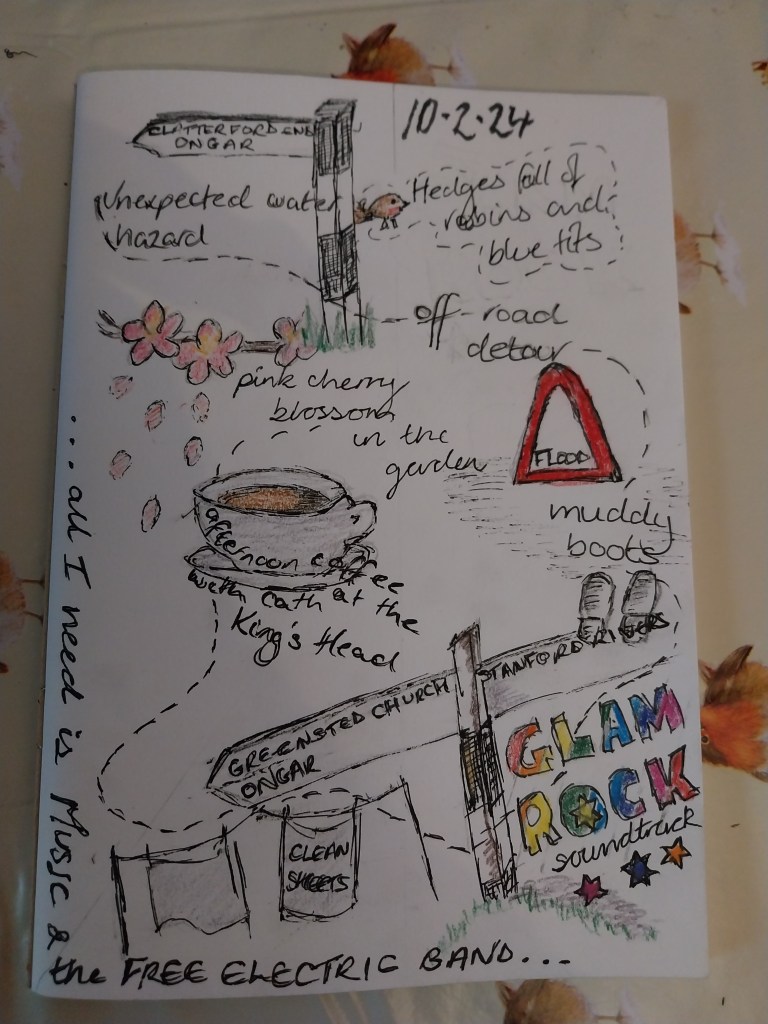 10.2.24
CLATTERFORD END
ONGAR
Unexpected water
hazard
Hedges full of
robins and
blue tits
off-road
detour
pink cherry
blossom
in the
garden
FLOOD
muddy
boots
afternoon coffee
with Cath at the
King's Head
STANFORD RIVERS
GREENSTED CHURCH
ONGAR
GLAM
ROCK
soundtrack
CLEAN
SHEETS
...all I need is Music &
the FREE ELECTRIC BAND...